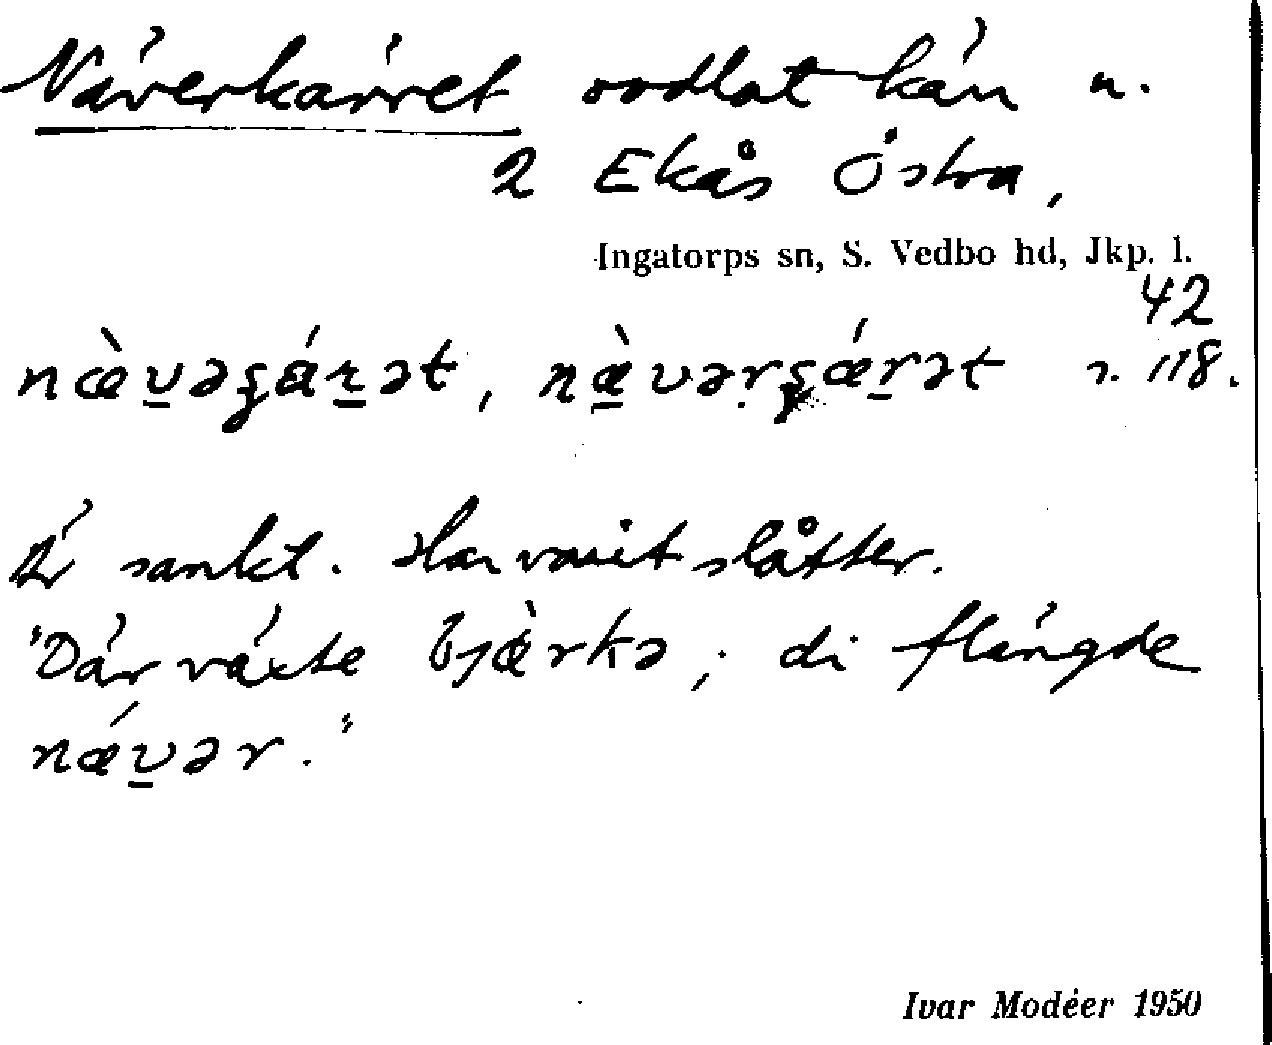 Näverkärret oodlat kärr n.
2 Ekås Östra,
Ingatorps sn, S. Vedbo hd, Jkp. l.
42
118.
Är sankt. Har varit slåtter.
"Där växte bjæ̀rkə; di flängde
nǽv̲ər."
Ivar Modéer 1950